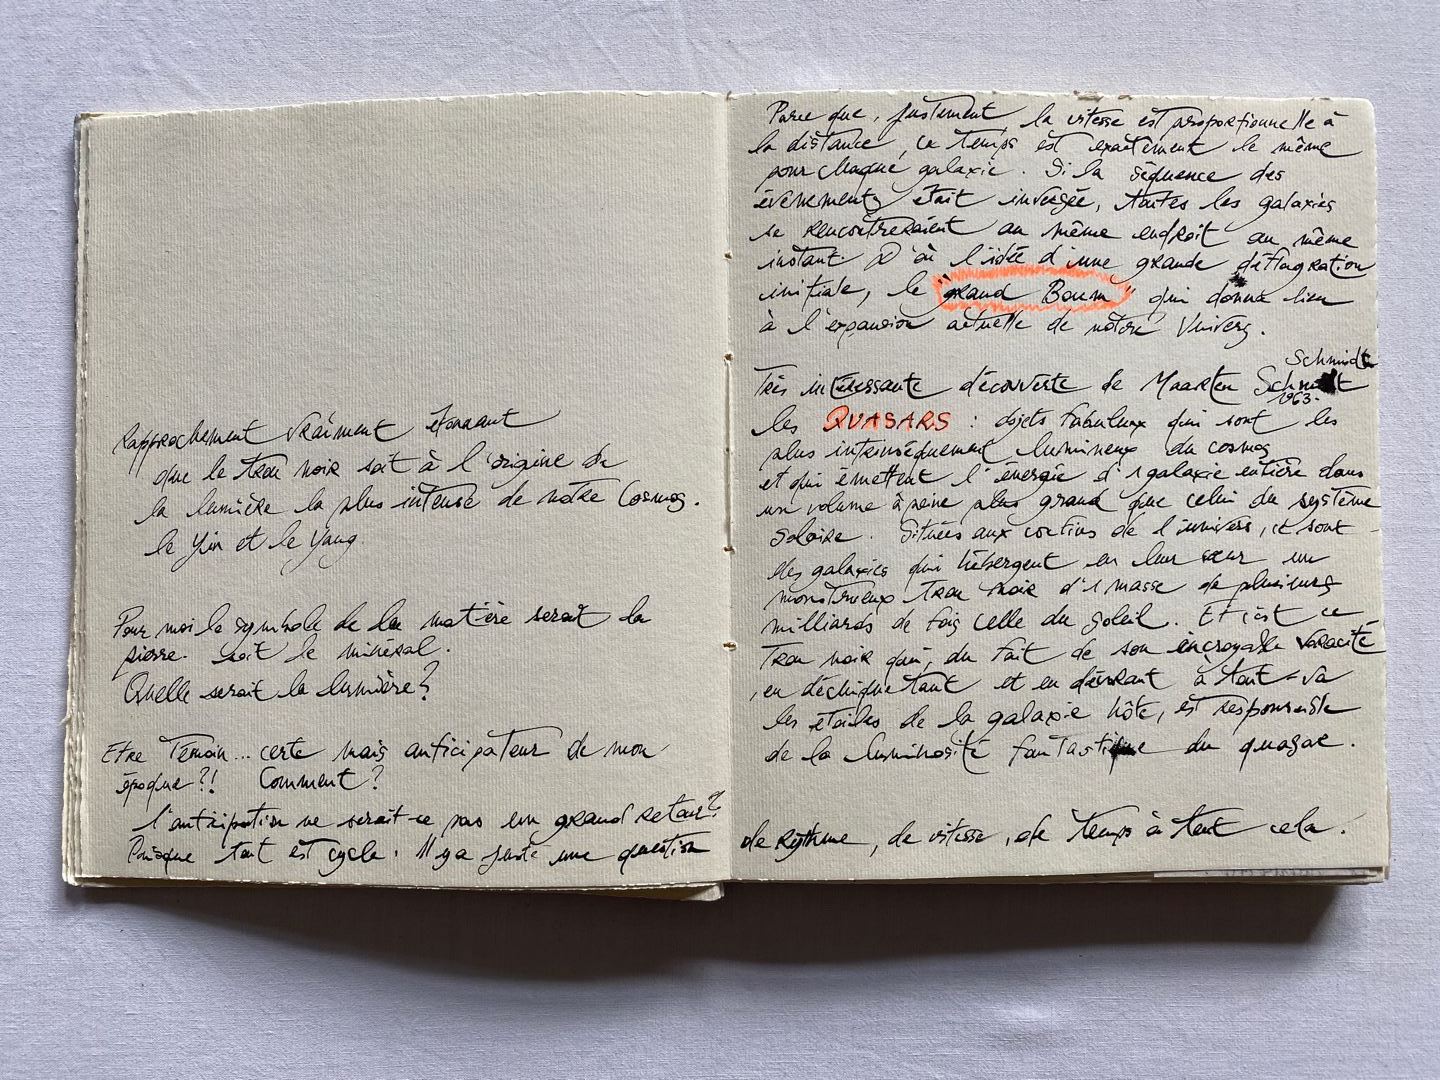 Rapprochement vraiment étonnant
que le trou noir soit à l'origine de
la lumière la plus intense de notre Cosmos.
le Yin et le Yang
Pour moi le symbole de la matière serait la
pierre. soit le minéral.
Quelle serait la lumière?
Etre Témoin... certe mais anticipateur de mon
époque?! Comment?
l'anticipation ne serait-ce pas un grand retour?
Puisque tout est cycle. Il y a juste une question
Parce que, justement, la vitesse est proportionnelle à
la distance, ce temps est exactement le même
pour chaque galaxie. Si la séquence des
évènements était inversée, toutes les galaxies
se rencontreraient au même endroit au même
instant. D'où l'idée d'une grande déflagration
initiale, le "grand Boum" qui donna lieu
à l'expansion actuelle de notre Univers.
Schmidt
Très intéressante découverte de Maarten
1963.
les QUASARS : objets fabuleux qui sont les
plus intrinsèquement lumineux du cosmos
et qui émettent l'énergie d'1 galaxie entière dans
un volume à peine plus grand que celui du système
solaire. Situées aux confins de l'univers, ce sont
des galaxies qui hébergent en leur cœur un
monstrueux trou noir d'1 masse de plusieurs
milliards de fois celle du soleil. Et c'est ce
Trou noir qui, du fait de son incroyable voracité
, en déchiquetant et en dévorant à tout-va
les étoiles de la galaxie hôte, est responsable
de la luminosité fantastique du quasar.
de rythme, de vitesse, de temps à tout cela.